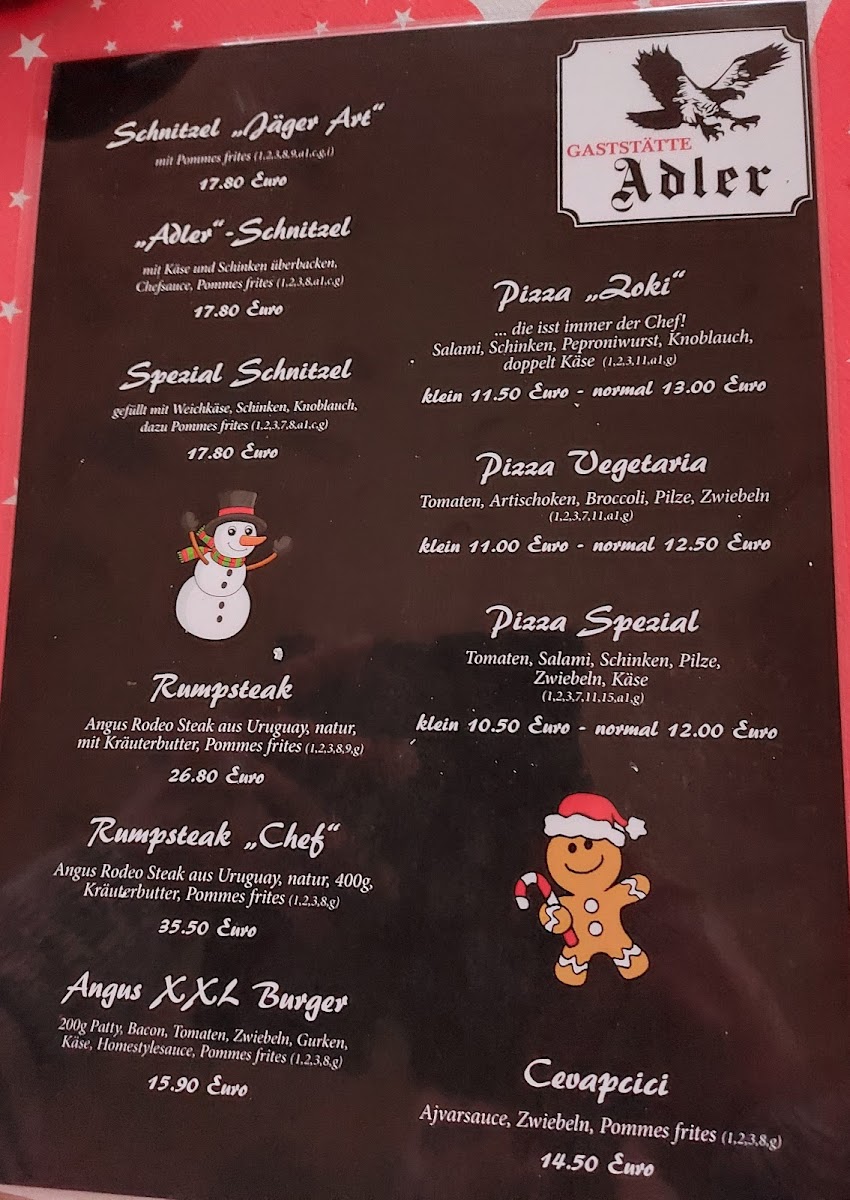 GASTSTÄTTE
Adler
Schnitzel „Jäger Art“
mit Pommes frites (1,2,3,8,9,a1,c,g,i)
17.80 Euro
„Adler“-Schnitzel
mit Käse und Schinken überbacken,
Chefsauce, Pommes frites (1,2,3,8,a1,c,g)
17.80 Euro
Spezial Schnitzel
gefüllt mit Weichkäse, Schinken, Knoblauch,
dazu Pommes frites (1,2,3,7,8,a1,c,g)
17.80 Euro
Rumpsteak
Angus Rodeo Steak aus Uruguay, natur,
mit Kräuterbutter, Pommes frites (1,2,3,8,9,g)
26.80 Euro
Rumpsteak „Chef“
Angus Rodeo Steak aus Uruguay, natur, 400g,
Kräuterbutter, Pommes frites (1,2,3,8,g)
35.50 Euro
Angus XXL Burger
200g Patty, Bacon, Tomaten, Zwiebeln, Gurken,
Käse, Homestylesauce, Pommes frites (1,2,3,8,g)
15.90 Euro
Pizza „Zoki“
... die isst immer der Chef!
Salami, Schinken, Peproniwurst, Knoblauch,
doppelt Käse (1,2,3,11,a1,g)
klein 11.50 Euro - normal 13.00 Euro
Pizza Vegetaria
Tomaten, Artischoken, Broccoli, Pilze, Zwiebeln
(1,2,3,7,11,a1,g)
klein 11.00 Euro - normal 12.50 Euro
Pizza Spezial
Tomaten, Salami, Schinken, Pilze,
Zwiebeln, Käse
(1,2,3,7,11,15,a1,g)
klein 10.50 Euro - normal 12.00 Euro
Cevapcici
Ajvarsauce, Zwiebeln, Pommes frites (1,2,3,8,g)
14.50 Euro